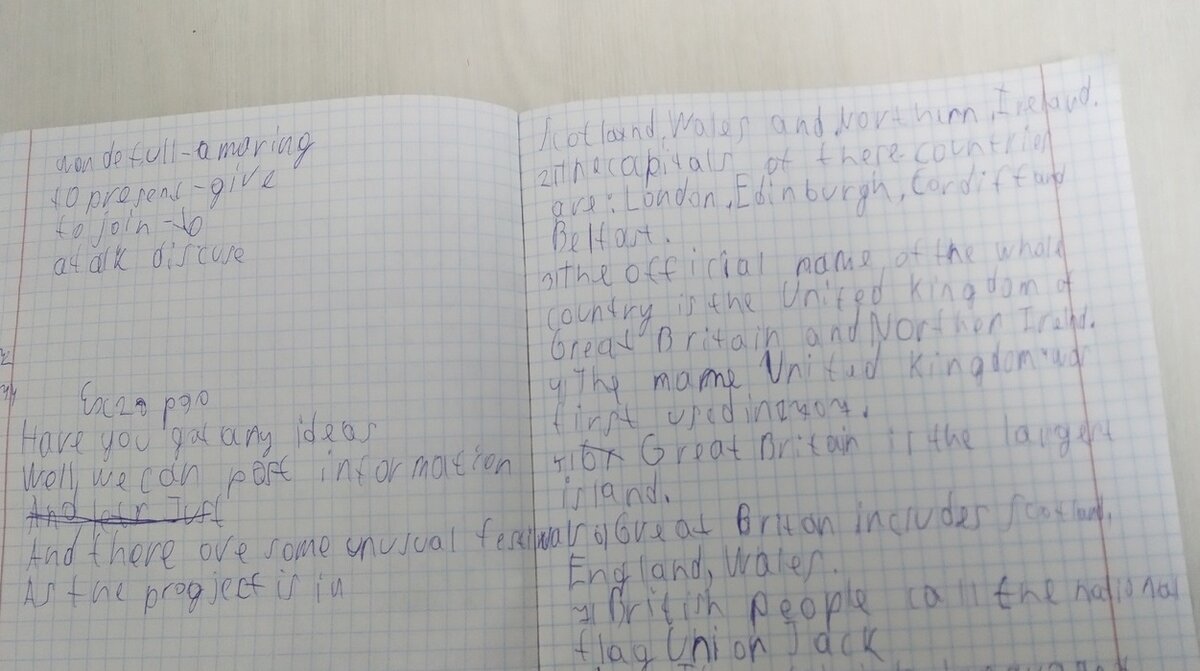 wondefull-amaring
to present-give
to join-to
atalk discuse
Ex28 p90
Have you got any ideas
Well, we can post information
And there ore some unusual festiwal
As the progject is in
Scotlaind, Wales and Northern, Ireland.
2) The capitals of there countries
are: London, Edinburgh, Cordiff and
Belfast.
3) The official name of the whole
country is the United Kingdom of
Great Britain and Northen Ireland.
4) The mame United Kingdom was
first used in
5) Great Britain is the largest
island.
6) Great Briton includes Scotland,
England, Wales.
7) British people call the national
flag Union Jack